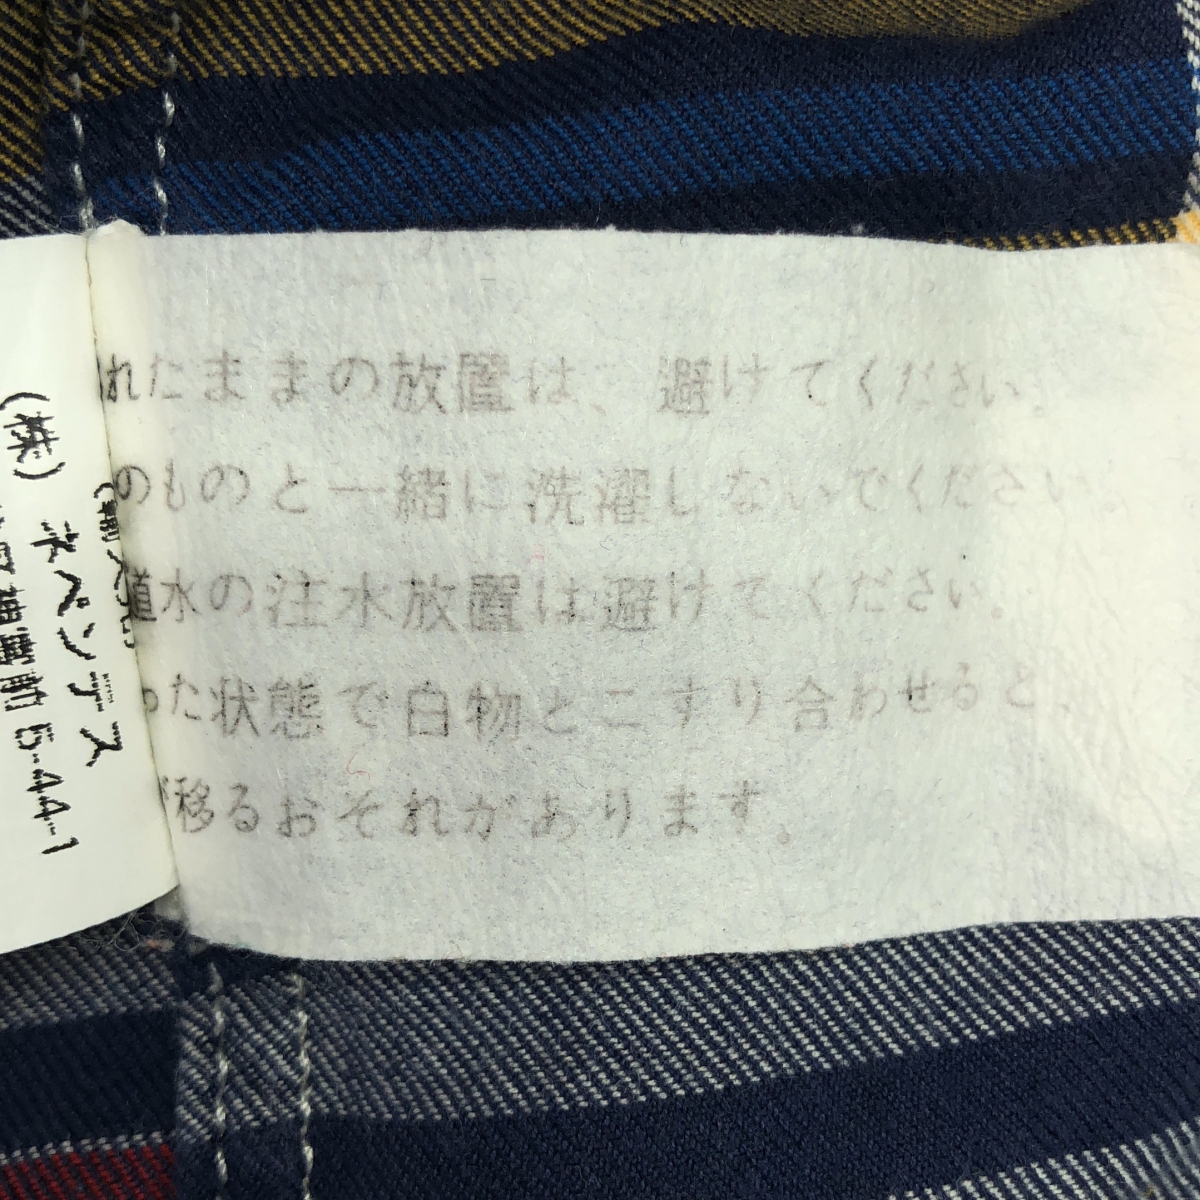 れたままの放置は、避けてください。
のものと一緒に洗濯しないでください。
道水の注水放置は避けてください。
った状態で白物とこすり合わせると、
が移るおそれがあります。
(株) ネペンテス
5-44-1